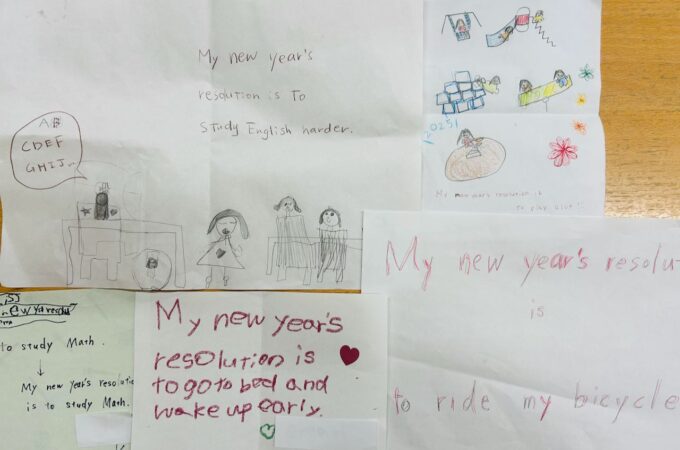 My new year's
resolution is To
Study English harder.
AB
CDEF
GHIJ...
My new year's resolution is
to play
My new year's resolut
is
to ride my bicycle
to study Math.
My new year's resolutio
is to study Math.
My new year's
resolution is
to go to bed and
wake up early.